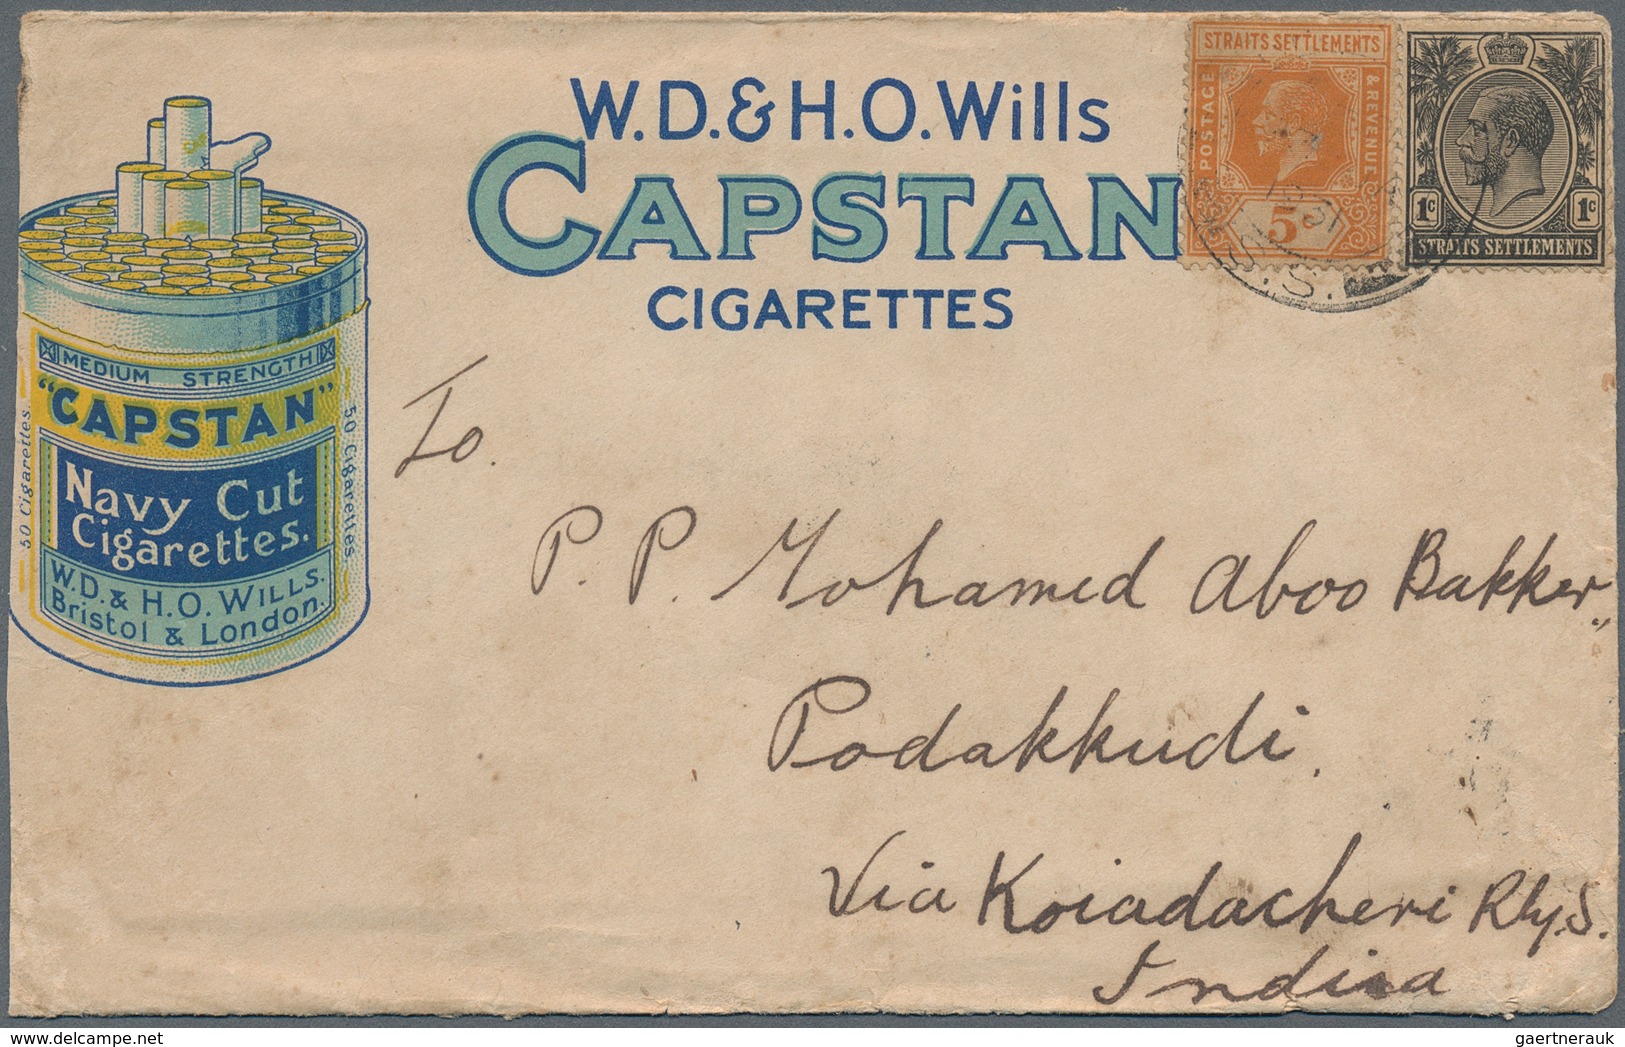 W.D.&H.O.Wills
CAPSTAN
CIGARETTES
STRAITS SETTLEMENTS
POSTAGE
& REVENUE
5
1c 1c
STRAITS SETTLEMENTS
S.S.
MEDIUM STRENGTH
"CAPSTAN"
Navy Cut
Cigarettes.
W.D. & H.O. WILLS.
Bristol & London.
50 Cigarettes.
50 Cigarettes.
To.
P. P. Mohamed Aboo Bakker,,
Podakkudi.
Via Koiadacheri Rly. S.
India
delcampe.net
gaertnerauk